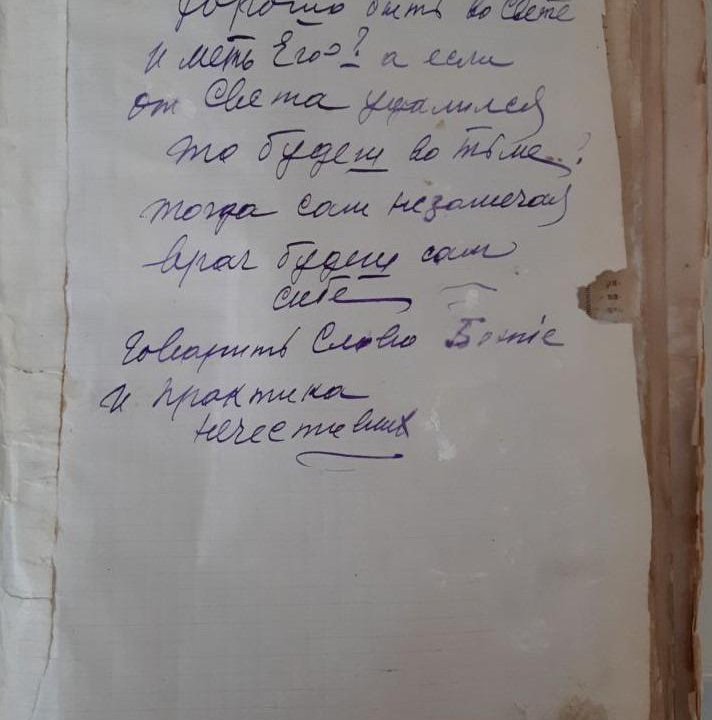 Хорошо быть во Свете
и меть Его? а если
от Света удалился
то будеш во тьме..?
тогда сам незамечая
враг будеш сам
сибе
Говорить Слово Божіе
и практика
нечестивых